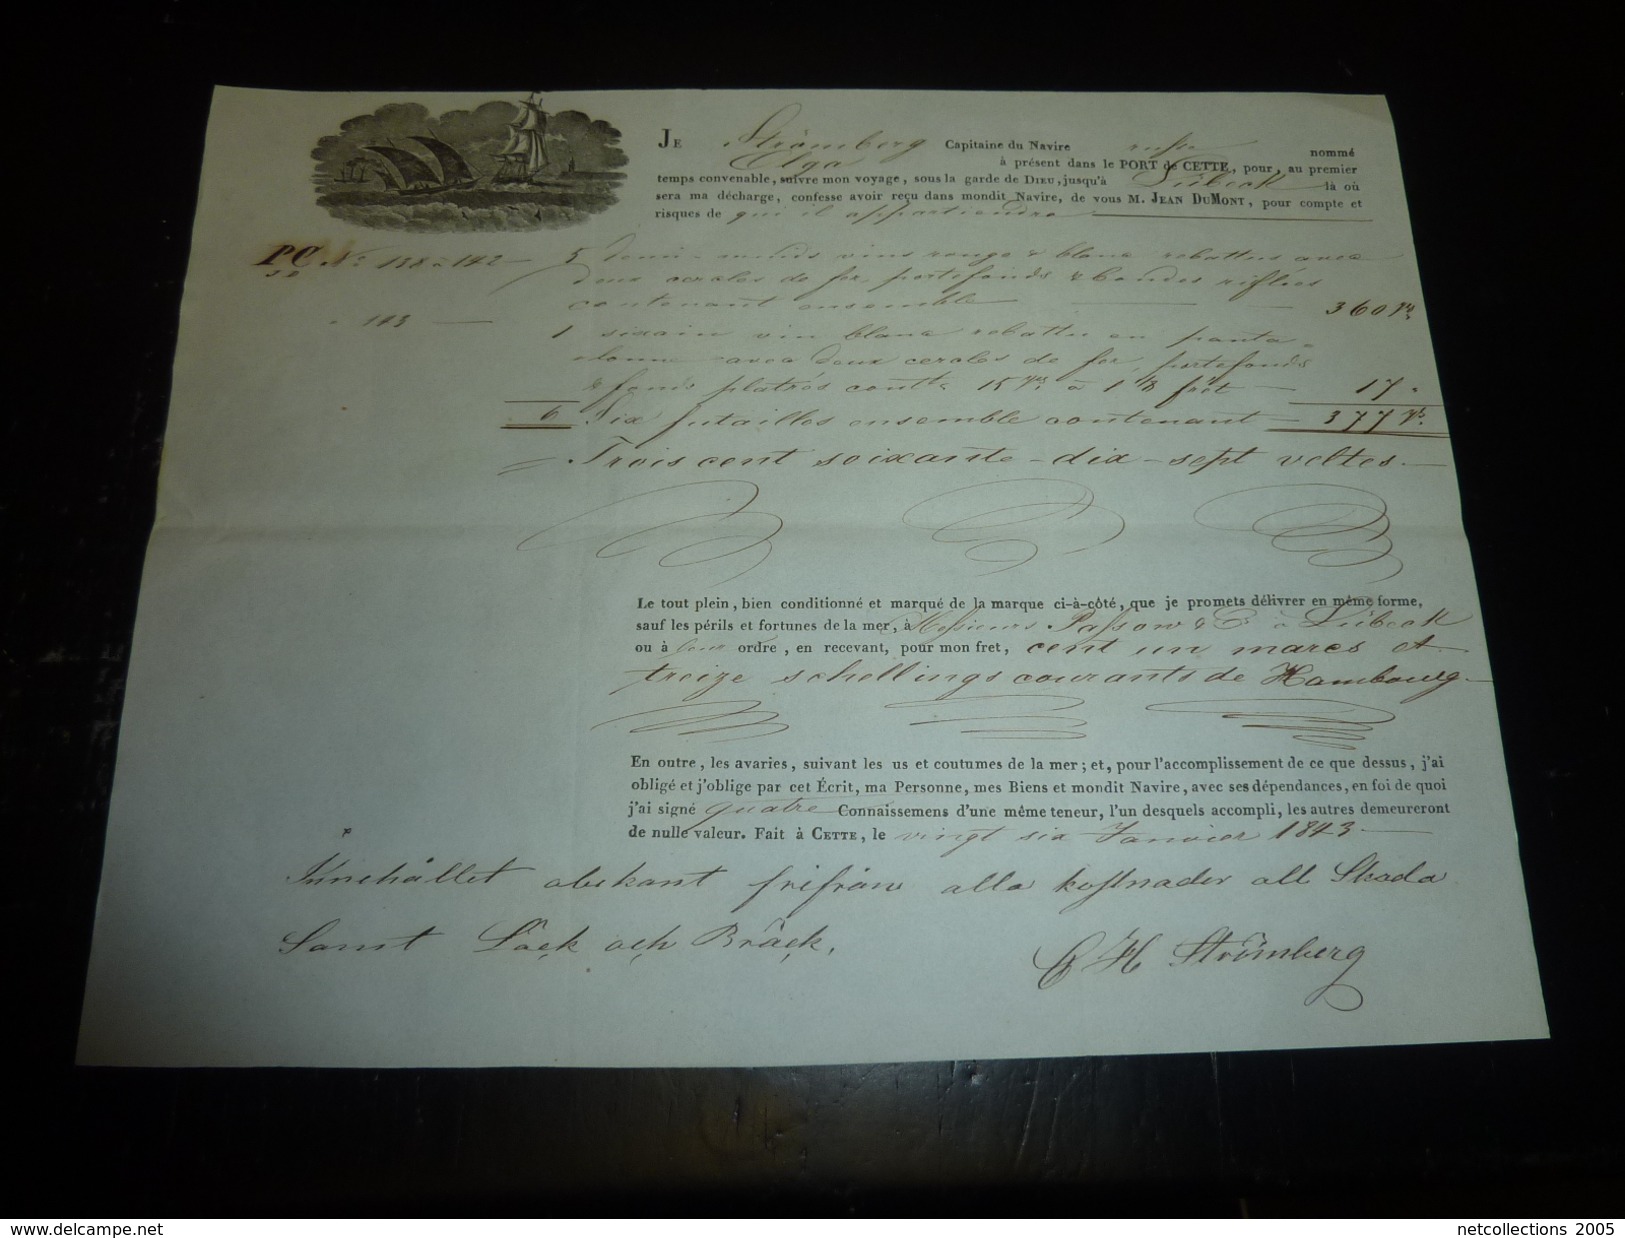 JE Strömberg Capitaine du Navire russe nommé
Olga à présent dans le PORT de CETTE, pour, au premier
temps convenable, suivre mon voyage, sous la garde de DIEU, jusqu'à Lübeck là où
sera ma décharge, confesse avoir reçu dans mondit Navire, de vous M. JEAN DUMONT, pour compte et
risques de qui il appartiendra
PC No 138 à 142 5 demi-muids vins rouge & blanc rebattus avec
JD deux cercles de fer, portefonds & bandes
contenant ensemble 360 Vs
" 143 1 sixain vin blanc rebattu en panta-
lonne avec deux cercles de fer, portefonds
& fonds platrés contt 15 Vs à 1/8 frèt 17 "
6 Six futailles ensemble contenant 377 Vs
Trois cent soixante-dix-sept veltes.
Le tout plein, bien conditionné et marqué de la marque ci-à-côté, que je promets délivrer en même forme,
sauf les périls et fortunes de la mer, à Messieurs Passow & Co à Lübeck
ou à leur ordre, en recevant, pour mon fret, cent un marcs et
treize schellings courants de Hambourg
En outre, les avaries, suivant les us et coutumes de la mer; et, pour l'accomplissement de ce que dessus, j'ai
obligé et j'oblige par cet Écrit, ma Personne, mes Biens et mondit Navire, avec ses dépendances, en foi de quoi
j'ai signé quatre Connaissemens d'une même teneur, l'un desquels accompli, les autres demeureront
de nulle valeur. Fait à CETTE, le vingt six Janvier 1843
Innehållet obekant frifrån alla kostnader all Skada
Samt Läck och Bräck,
Strömberg
netcollections 2005
delcampe.net